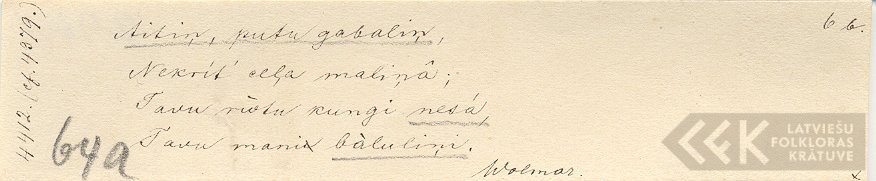 6 b.
Aitiņ, putu gabaliņ,
Nekrīt' ceļa maliņâ;
Tavu rōtu kungi nesá,
Tavu mani bàluliņi.
Wolmar.
64a
LATVIEŠU
FOLKLORAS
KRĀTUVE